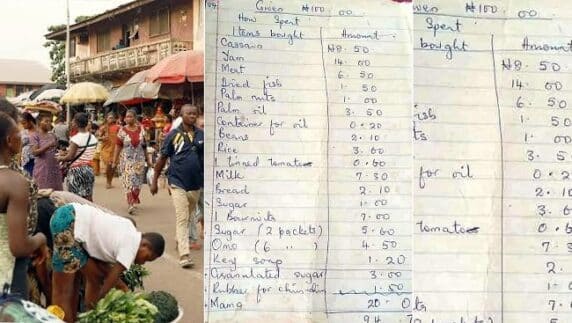 Given ₦100 . 00
How Spent
Items bought Amount
Cassava ₦8.50
Yam 14.00
Meat 6.50
Dried fish 1.50
Palm nuts 1.00
Palm oil 3.50
Container for oil 0.20
Beans 2.10
Rice 3.60
1 tinned tomatoe 0.60
Milk 7.30
Bread 2.10
Sugar 1.00
1 Bournvita 7.00
Sugar (2 packets) 5.60
Omo (6 ,, ) 4.50
Key soap 1.20
Granulated sugar 3.00
Rubber for chin chin 1.50
Mama 20.0
94
ven ₦100 . 00
Spent
bought Amount
₦8.50
14.00
6.50
ish 1.50
ts 1.00
3.5
for oil 0.2
2.10
3.6
tomatoe 0.6
7.3
2.
1.
ts 7.0
packets) 5